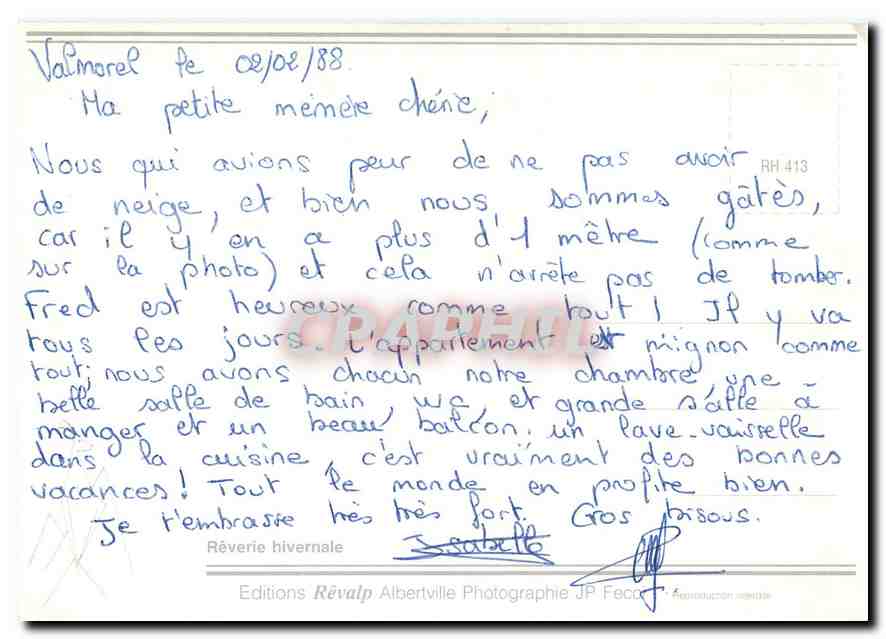 Valmorel le 02/02/88.
Ma petite mémère chérie,
Nous qui avions peur de ne pas avoir
RH 413
de neige, et bien nous sommes gâtès,
car il y en a plus d'1 mêtre (comme
sur la photo) et cela n'arrête pas de tomber.
Fred est heureux comme tout! Il y va
tous les jours. L'appartement est mignon comme
tout; nous avons chacun notre chambre, une
belle salle de bain, wc, et grande salle à
manger et un beau balcon. un lave-vaisselle
dans la cuisine, c'est vraiment des bonnes
vacances! Tout le monde en profite bien.
Je t'embrasse très très fort. Gros bisous.
Isabelle
Rêverie hivernale
Editions Rêvalp Albertville Photographie JP Feco
Reproduction interdite
CPAPHIL